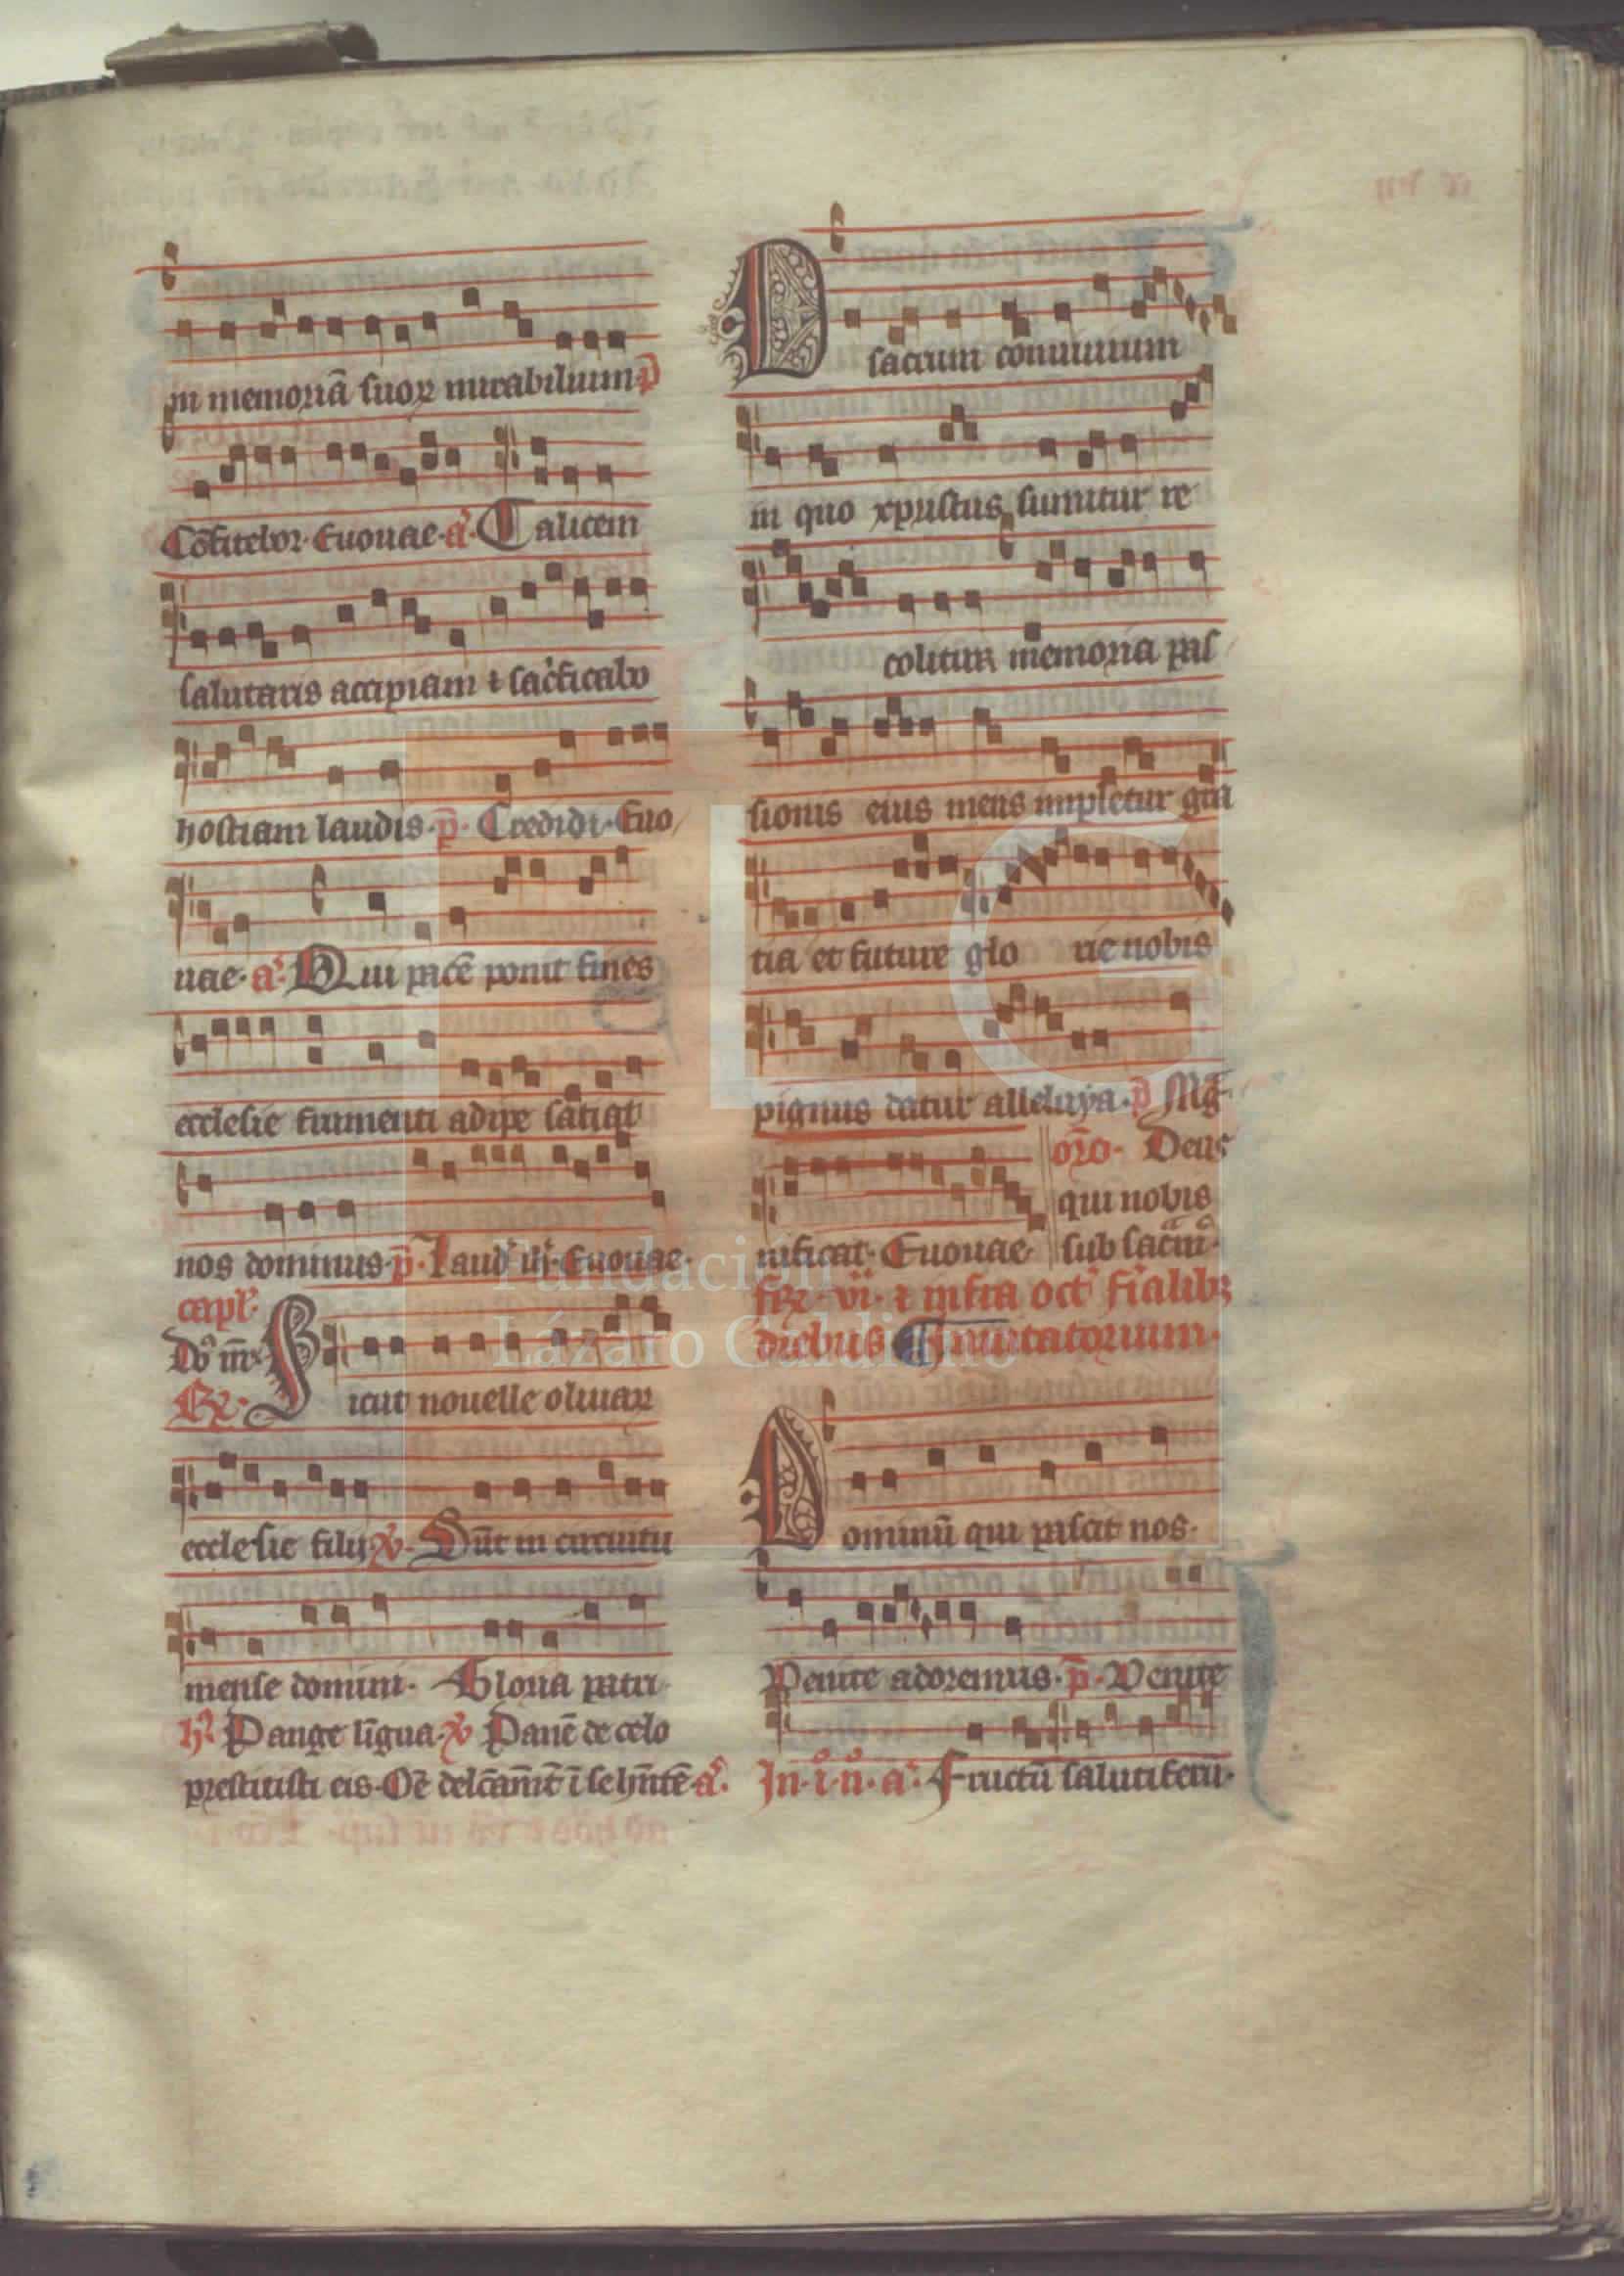 in memoriā suoꝝ mirabilium p̄
Cōfitebor. Euouae. a᷑. Calicem
salutaris accipiam ⁊ sac᷑ficabo
hostiam laudis. p̄. Credidi. Euo
uae. a᷑. Qui pacē ponit fines
ecclesie frumenti adipe satiat
nos dominus. p̄. Laud᷑ iii. Euouae.
capl᷑.
Dn̄s
R̶. Sicut nouelle oliuaꝝ
ecclesie filij. v̄. Sūt in circuitu
mense domini. Gloria patri
h᷑. Pange līgua. v̄. Panē de celo
prestitisti eis. Oē
O sacrum conuiuium
in quo xpistus sumitur re
colitur memoria pas
sionis eius mens impletur gra
tia et future glo rie nobis
pignus datur alleluya. p̄ Mḡ
nificat. Euouae.
or̄o. Deus
qui nobis
sub sacr̄m.
vi. ⁊ infra oct᷑ f᷑ialibꝫ
diebus Inuitatorium.
Dominū qui pascit nos.
Venite adoremus. p̄. Venite
In. i. n. a᷑. Fructū salutiferū.
Fundación
Lázaro Galdiano
FLG